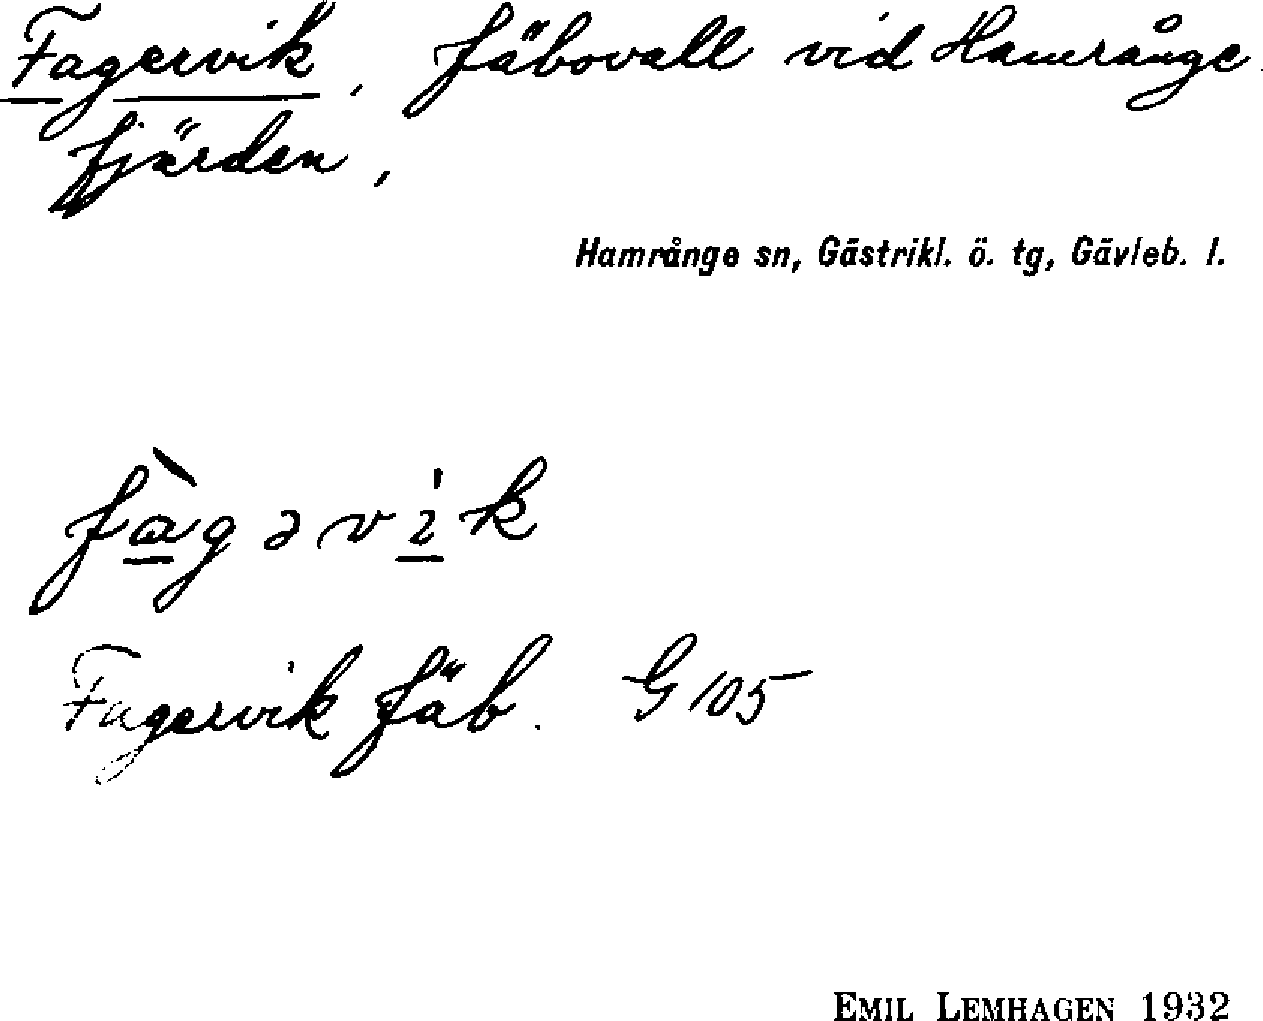 Fagervik, fäbovall vid Hamrånge
fjärden,
Hamrånge sn, Gästrikl. ö. tg, Gävleb. l.
fàgəvìk
Fagervik fäb. G 105
EMIL LEMHAGEN 1932